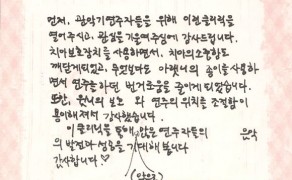 먼저, 관악기연주자들을 위해 이런클리닉을
열어주시고, 관심을 기울여주심에 감사드립니다.
치아보호장치를 사용하면서, 치아의 소중함도
깨닫게되었고, 무엇보다도 아랫니의 종이를 사용하
면서 연주를하던 번거로움을 줄이게 되었습니다.
또한, 윗니의 보호와 연주의 위치를 조절함이
용이해져서 감사했습니다.
이 클리닉을 통해 많은 연주자들의 음악
의 발전과 성공을 기대해 봅니다
감사합니다! ♡
(앞으로)